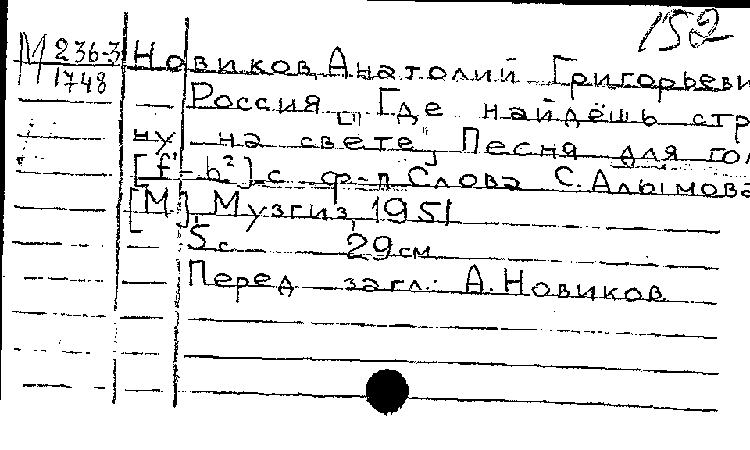 152
М 236-3 Новиков, Анатолий Григорьеви
1748 Россия ["Где найдёшь стр
ну на свете"] Песня для гол
[f¹-b²] с ф-п Слова С. Алымова
[М.], Музгиз, 1951
5 с. 29 см
Перед загл.: А. Новиков